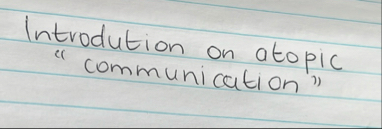 Introdution on atopic
“ communication ”